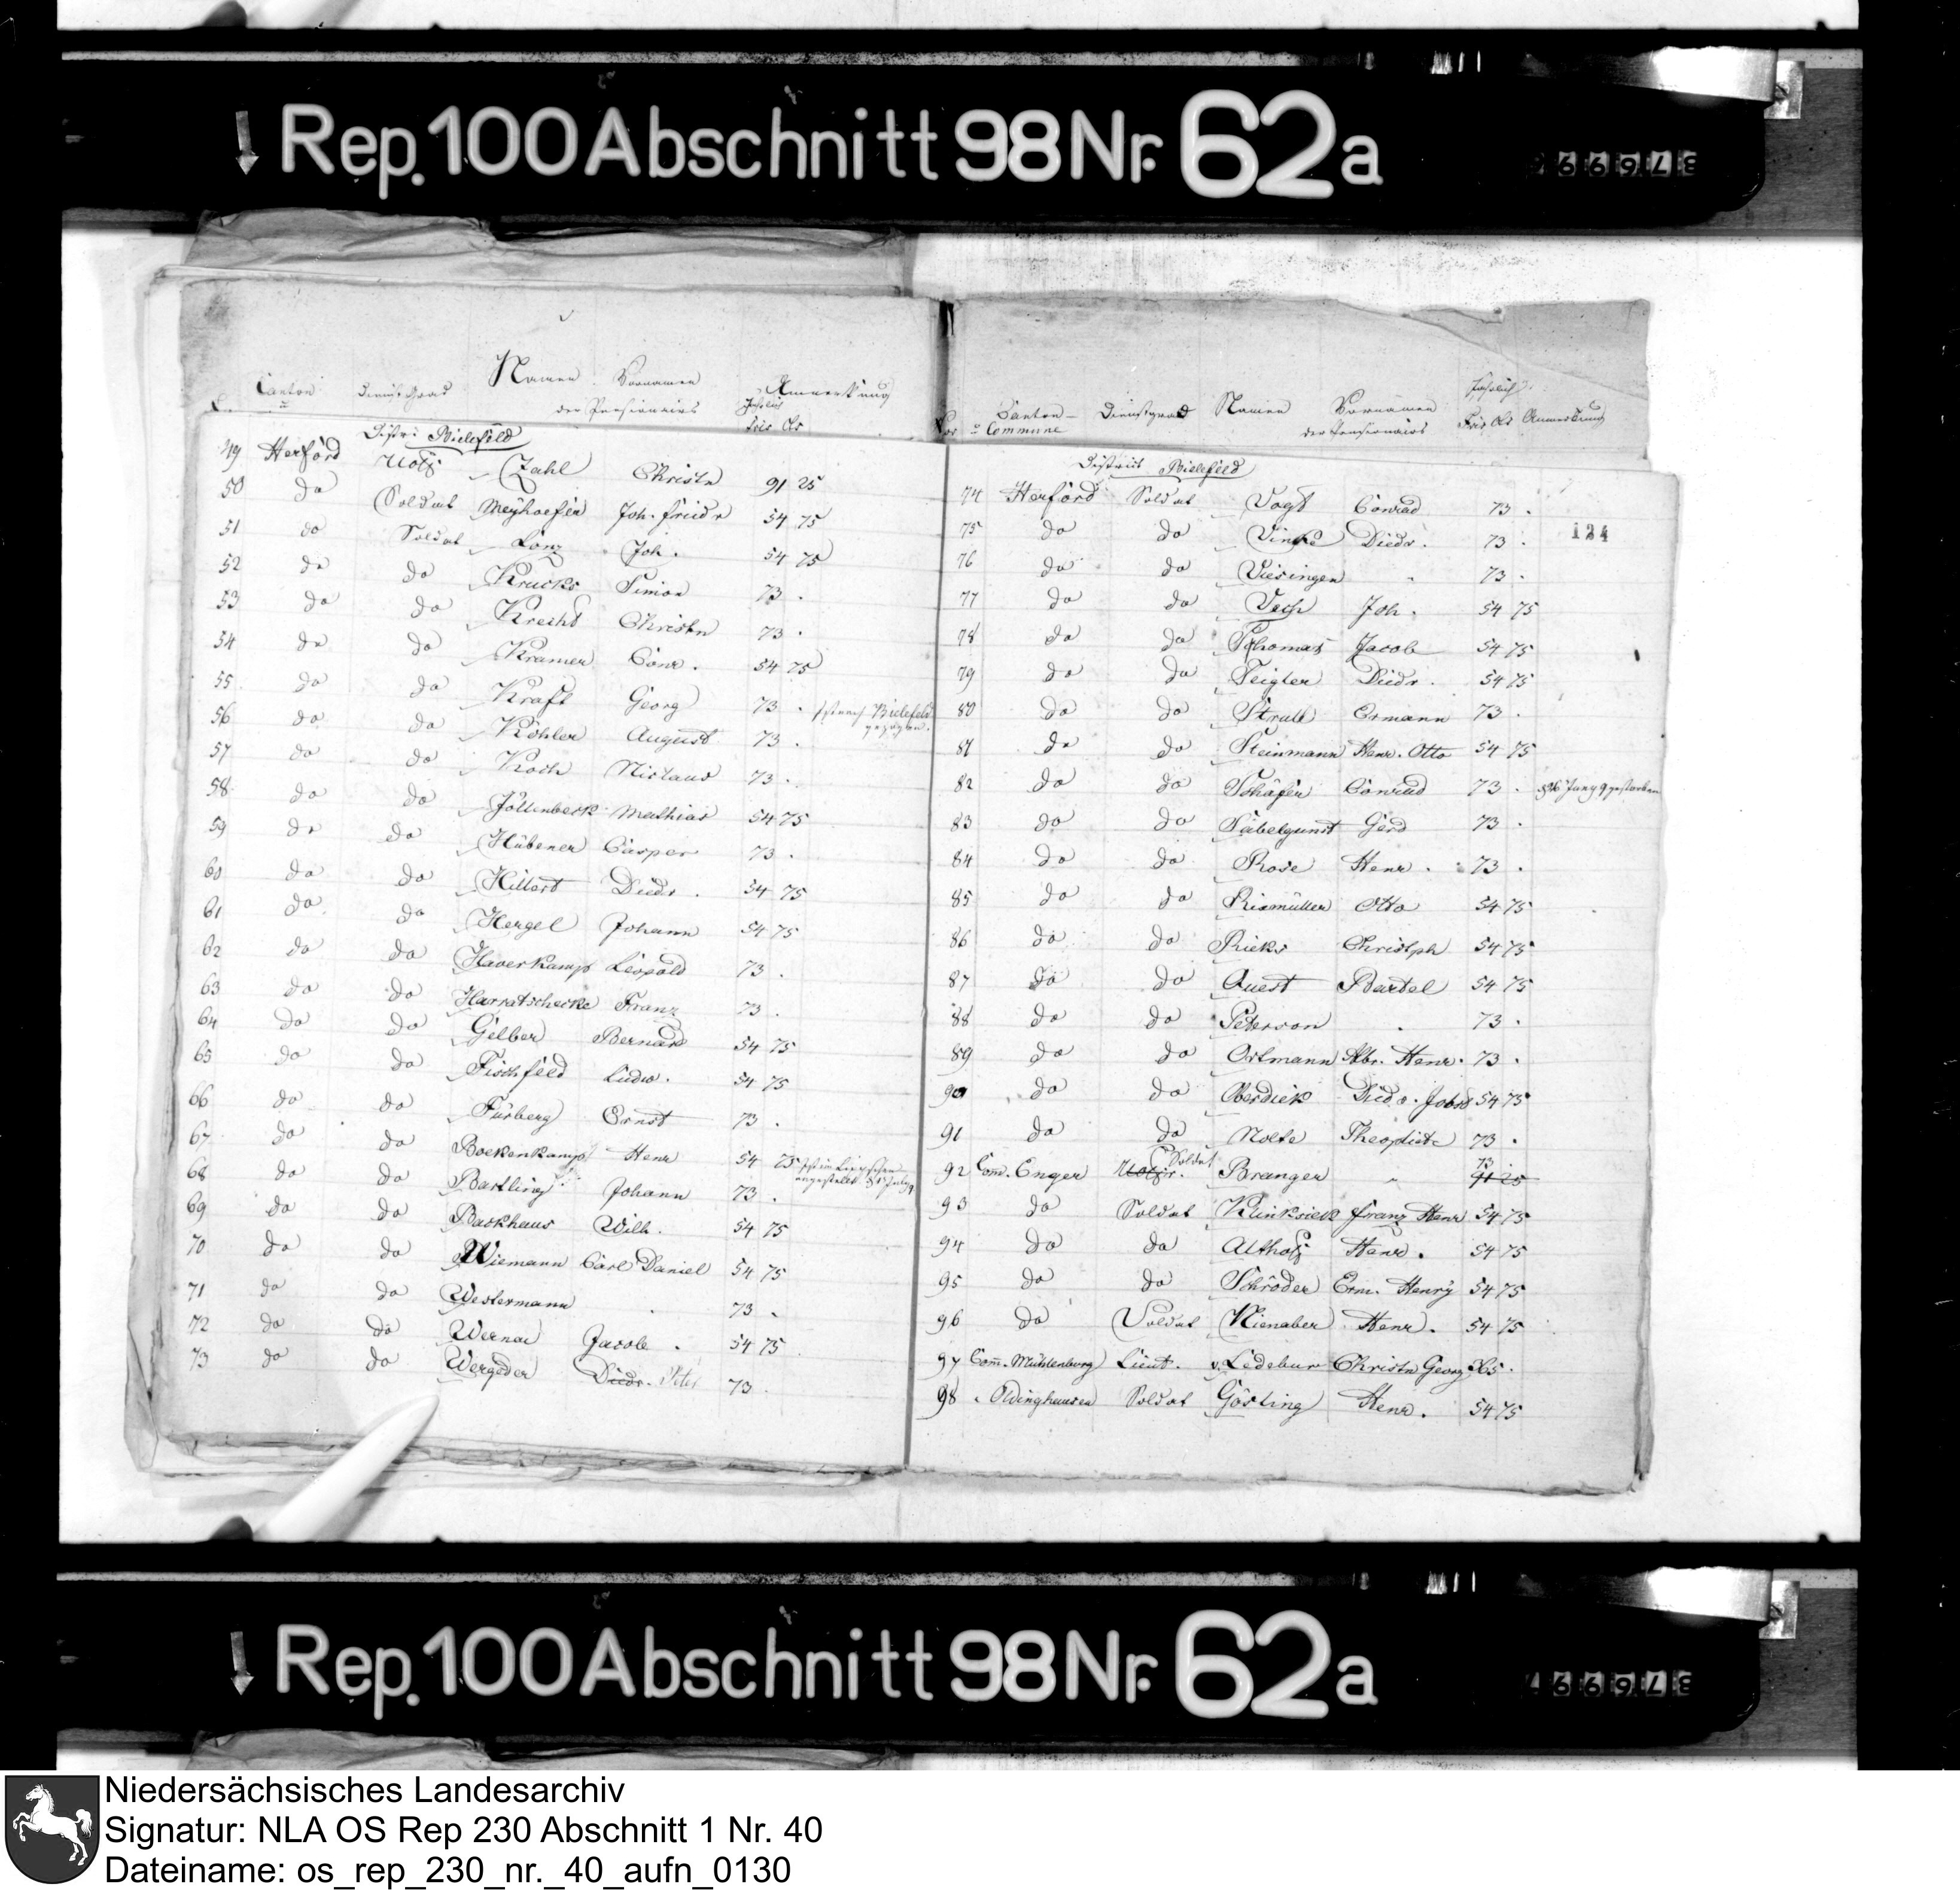 Rep. 100 Abschnitt 98 Nr. 62a
376996
Canton Dienstgrad Namen Vornamen Anmerkung
der Pensionairs Jährlich
frcs Cts
Distr. Bielefeld
49 Herford Uoff Zahl Christn 91 25
50 do Soldat Meyhoefer Joh. Friedr 54 75
51 do Soldat Lonz Joh. 54 75
52 do do Krucks Simon 73 .
53 do do Krecht Christn 73 .
54 do do Kramer Conr. 54 75
55 do do Kraft Georg 73 . ist nach Bielefeld gezogen.
56 do do Köhler August 73 .
57 do do Koch Niclaus 73 .
58 do do Jöllenbeck Mathias 54 75
59 do do Hübener Casper 73 .
60 do do Hillert Diedr. 54 75
61 do do Hergel Johann 54 75
62 do do Haverkamp Leopold 73 .
63 do do Harratschecke Franz 73 .
64 do do Gelber Bernard 54 75
65 do do Fischfeld Ludw. 54 75
66 do do Fürberg Ernst 73 .
67 do do Boekenkamp Henr 54 75
68 do do Bartling Johann 73 . angestellt
69 do do Backhaus Wilh. 54 75
70 do do Wiemann Carl Daniel 54 75
71 do do Westermann . 73 .
72 do do Werner Jacob . 54 75
73 do do Wergeder Diedr. Peter 73 .
Canton Dienstgrad Namen Vornamen Jährlich
u Commune der Pensionairs Frcs Cts Anmerkung
District Bielefeld
74 Herford Soldat Vogt Conrad 73 .
124
75 do do Vincke Diedr. 73 .
76 do do Viesingen " 73 .
77 do do Vech Joh. 54 75
78 do do Thomas Jacob 54 75
79 do do Teigler Diedr. 54 75
80 do do Strull Ermann 73 .
81 do do Steinmann Henr. Otto 54 75
82 do do Schäfer Conrad 73 . gestorben
83 do do Säbelgunst Gerd 73 .
84 do do Rose Henr. 73 .
85 do do Rismüller Otto 54 75
86 do do Rieks Christph 54 75
87 do do Quest Bartel 54 75
88 do do Peterson . 73 .
89 do do Ortmann Albr. Henr. 73 .
90 do do Oberdiek Diedr. Jobst 54 75
91 do do Nolte Theophiel 73 .
92 Com. Enger Uoffzr. Soldat Branger " 91 25 73
93 do Soldat Kunksiek Franz Henr 54 75
94 do do Althoff Henr. 54 75
95 do do Schröder Erm. Henry 54 75
96 do Soldat Nienaber Henr. 54 75
97 Com. Mühlenburg Lieut. v. Ledebur Christn Georg 365 .
98 " Oldinghausen Soldat Gösting Henr. 54 75
Rep. 100 Abschnitt 98 Nr. 62a
376997
Niedersächsisches Landesarchiv
Signatur: NLA OS Rep 230 Abschnitt 1 Nr. 40
Dateiname: os_rep_230_nr._40_aufn_0130